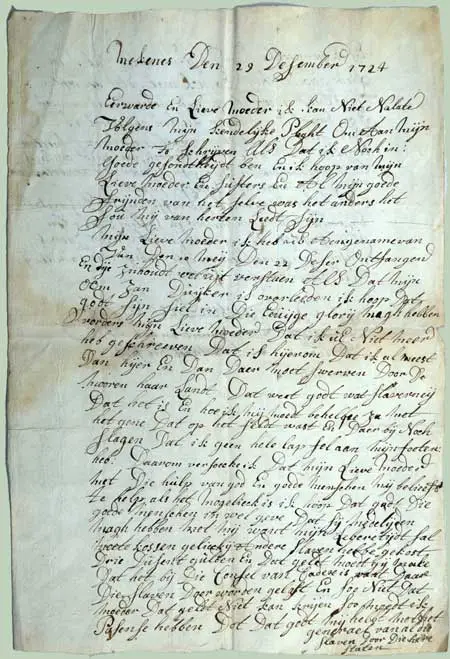 mekenes Den 29 Desember 1724
Eerwarde En Lieve moeder ik kan Niet Nalate
Volgens mijn kendelyke Plight Om Aan Mijn
moeder Te schrijven Als Dat ik Noch in
Goede gesondthyt ben En ik hoop van mijn
Lieve moeder En susters En Al mijn goede
Vrinden van het selve was het anders het
Sou mij van herten Leedt sijn
Mijn Lieve moeder ik heb
Van Den 10 meij Den 22 Deser Ontfangen
En Die Inhoudt verstaen Als Dat mijn
Oom Jan Duijker is overleeden ik hoop Dat
godt sijn siel in Die Eeuijge glory magh hebben
vorders mijn Lieve moeder Dat ik ul Niet meer
heb geschreeven Dat is hijerom Dat ik al meest
Dan hijer En Dan Daer moet swerven Door De
mooren haar Landt Dat weet godt wat slavernij
Dat het is En hoe ik mij moet behelpe met
het gene Dat op het feldt wast En Daer bij Noch
slagen Dat ik geen hele lap aan mijn
heb Daarom versoecke ik Dat mijn Lieve moeder
met Die hulp van god En goede menschen mij
te help als het mogelieck is ik hoop Dat godt Die
goede menschen geve Dat sij medelyen
magh hebben met mij want mijn
kossen gelieckijt Slaven
Drie Dusent gulden En Dat geldt moet
Dat het bij Die Consel van Daer
Die slaven Daer worden gelost En soo Niet Dat
moeder Dat geldt Niet kan krijen soo moet ik
Pasense hebben Dot Dat godt mij helpt
generael van al
slaven Door Die heere
staten